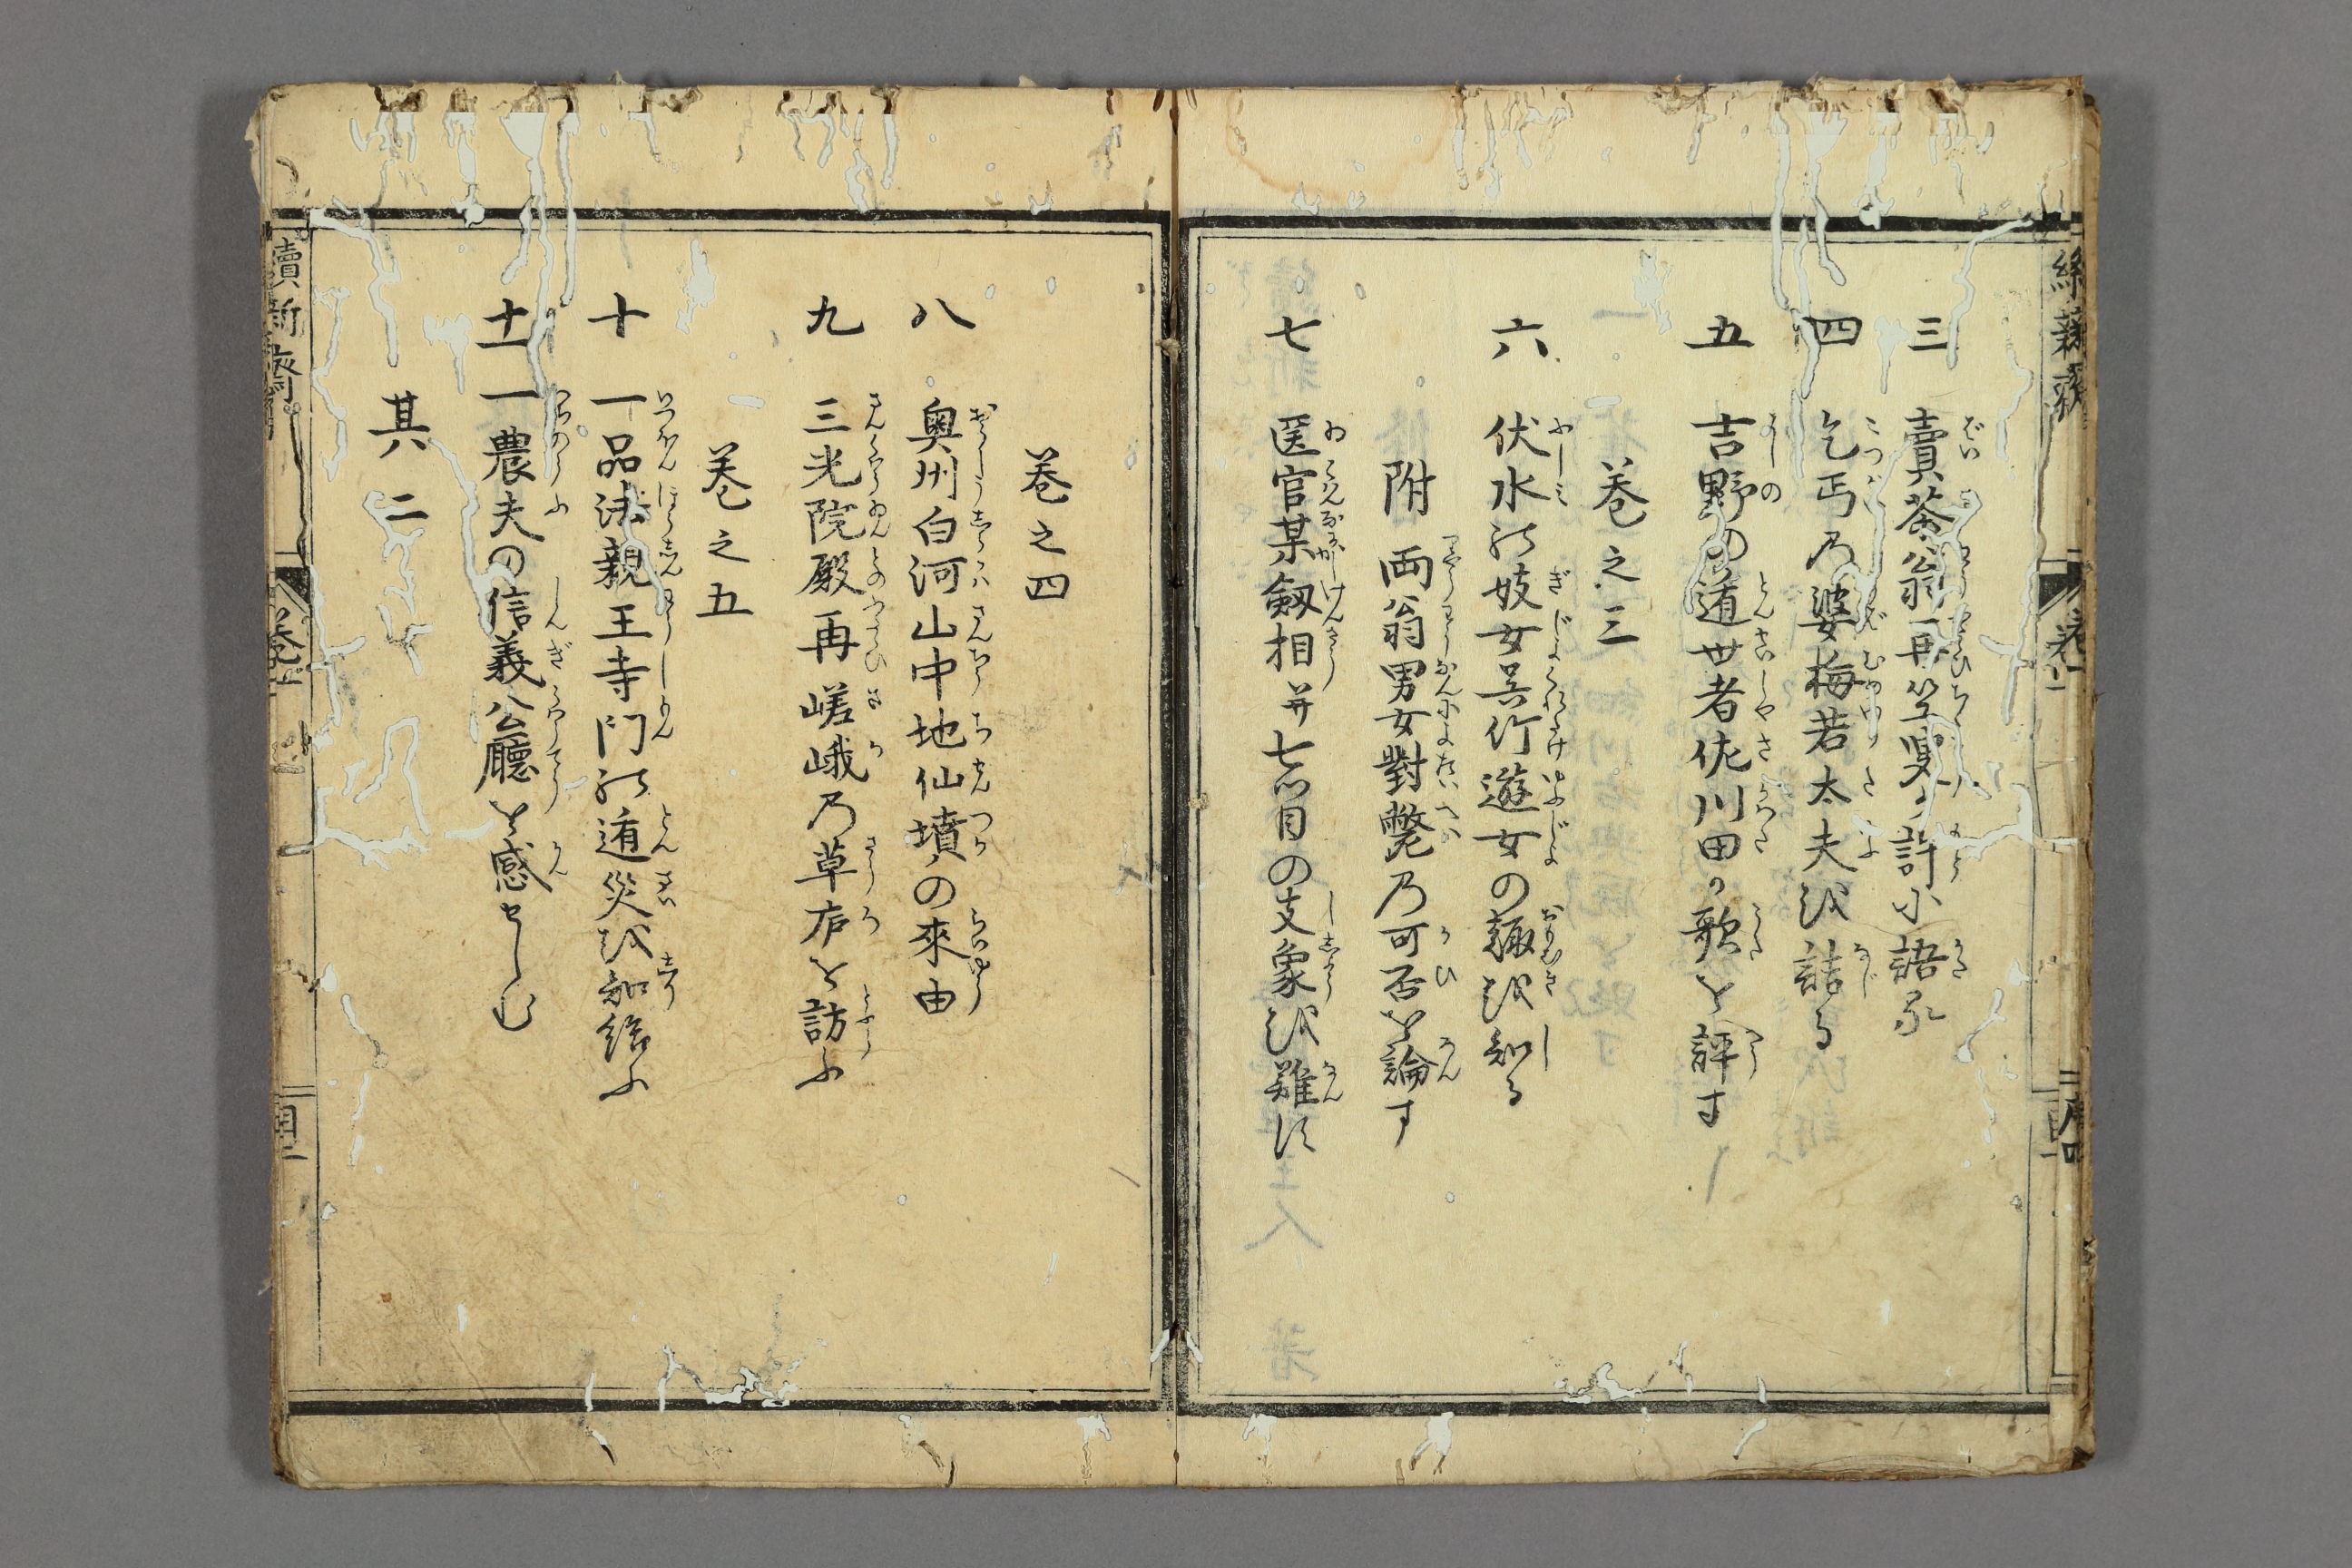 三 賣茶翁再笠翁か許に語る
四 乞丐乃婆梅若太夫を詰る
五 吉野の遁世者佐川田か歌を評す
巻之三
六 伏水の妓女呉竹遊女の諏を知る
附 両翁男女對斃乃可否を論す
七 医官某劔相并七ツ目の支象を難す
巻之四
八 奥州白河山中地仙墳の來由
九 三光院殿再嵯峨乃草庵を訪ふ
巻之五
十 一品法親王寺門の遁災を知給ふ
十一 一農夫の信義公廳を感せしむ
其二
續新齋